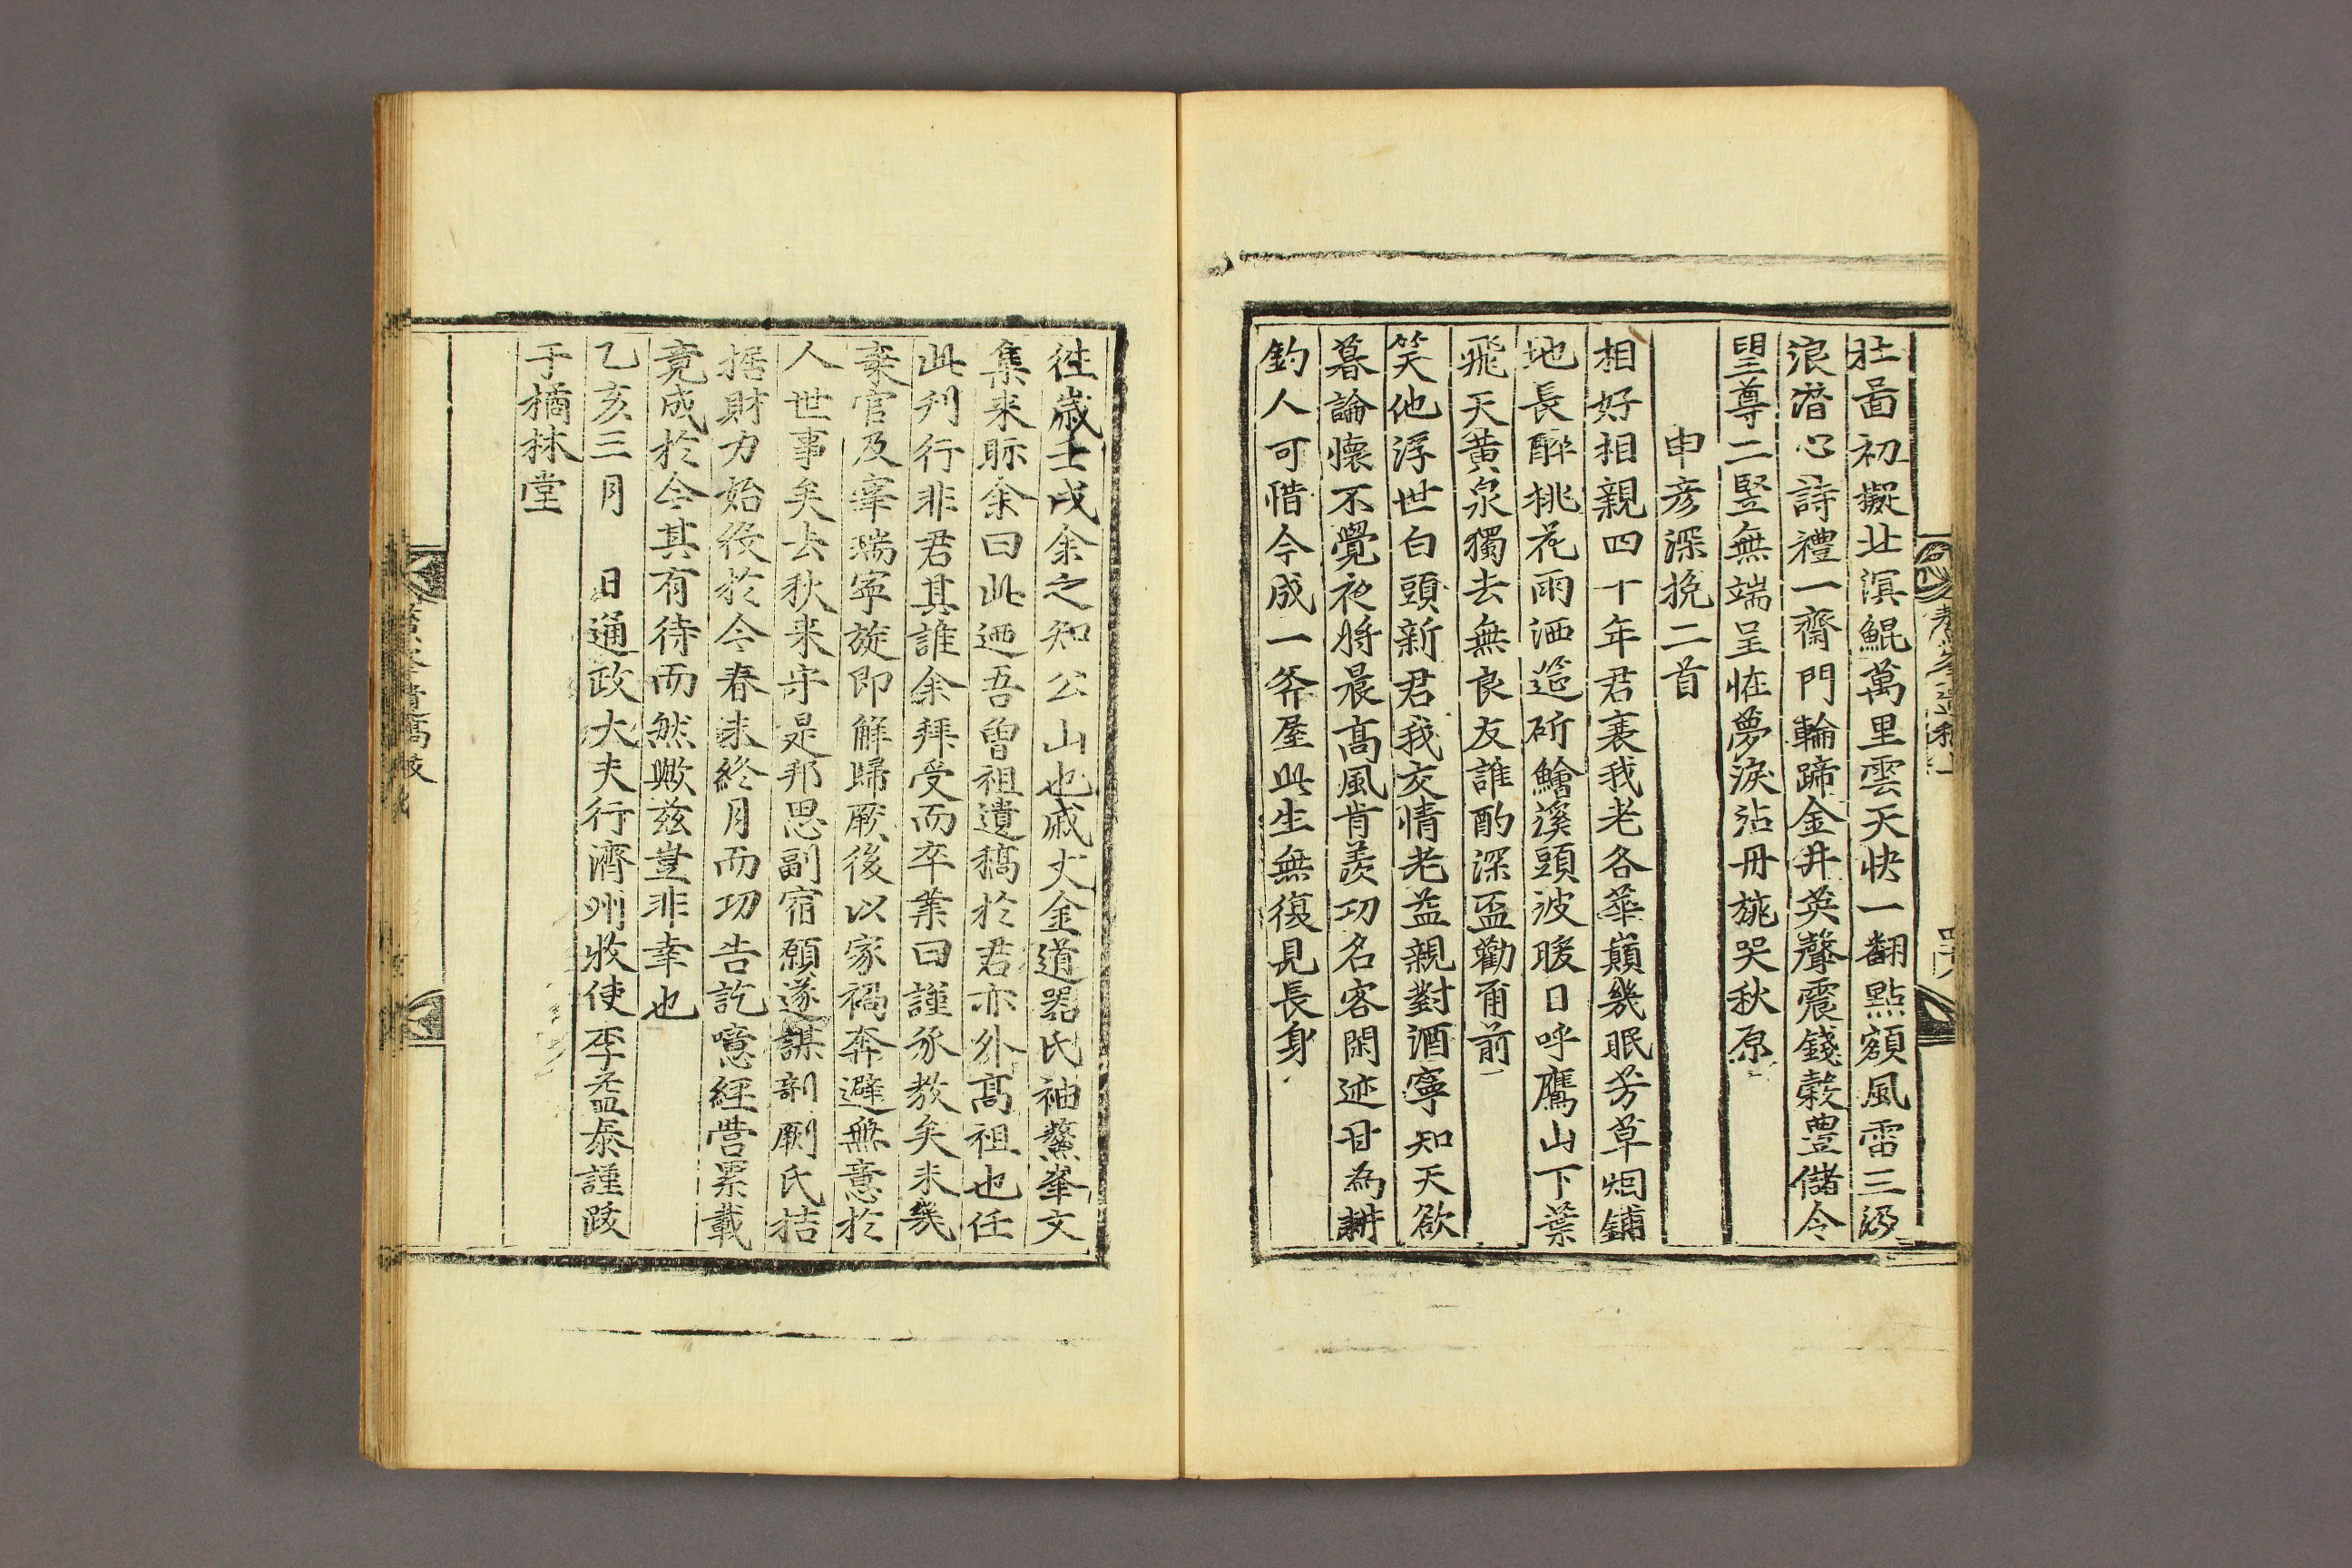 壮啚初擬北溟鯤萬里雲天快一翻點額風雷三汲
浪潜心詩禮一齋門輪蹄金井英聲震錢榖豊儲令
望尊二竪無端呈恠夢淚沾丹旐哭秋原
申彦深挽二首
相好相親四十年君衰我老各華巔幾眠芳草烟鋪
地長醉桃花雨洒筵斫鱠溪頭波暖日呼鷹山下葉
飛天黄泉獨去無良友誰酌深盃勸甭前
笑他浮世白頭新君我交情老益親對酒寧知天欲
暮論懷不覺夜將晨高風肯羨功名客閑迹甘為耕
釣人可惜今成一斧屋此生無復見長身
鰲峯遺稿
四六
徃歲壬戌余之知公山也戚丈金道器氏袖鰲峯文
集来眎余曰此迺吾曽祖遺稿於君亦外高祖也任
此刋行非君其誰余拜受而卒業曰謹承教矣未幾
棄官及宰瑞寧旋即解歸厥後以家禍奔避無意於
人世事矣去秋来守是邦思副宿願遂謀剞劂氏拮
据財力始役於今春未終月而功告訖噫經營累載
竟成於今其有待而然歟玆豈非幸也
乙亥三月　日通政大夫行濟州牧使李益泰謹跋
于橘林堂